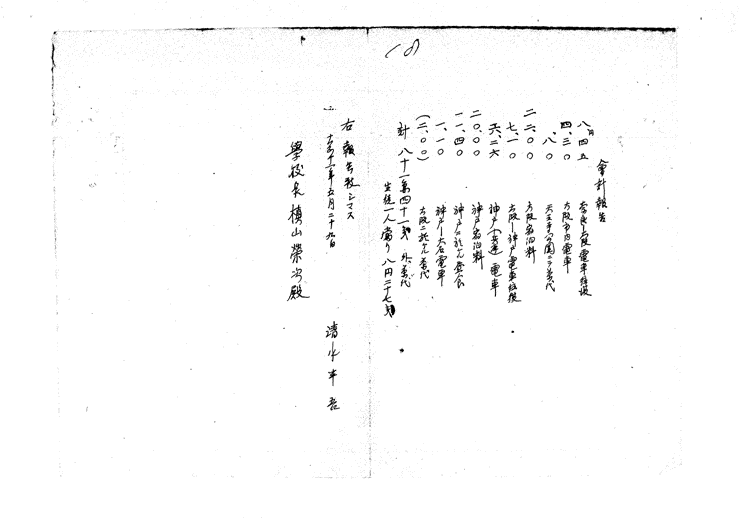 (8)
會計報告
八円四五 奈良—大阪電車往復
四、三〇 大阪市内電車
、八〇 天王寺公園ニテ茶代
二二、〇〇 大阪宿泊料
七、一〇 大阪—神戸電車往復
六、二六 神戸(普通)電車
二〇、〇〇 神戸宿泊料
一一、四〇 神戸ニ於ケル昼食
一、一〇 神戸—大石電車
(二、〇〇) 大阪ニ於ケル茶代
計 八十一円四十一銭 外、茶代
生徒一人當リ八円二十七銭
右報告致シマス
大正十一年五月二十九日
清水
學校長 槙山榮次殿